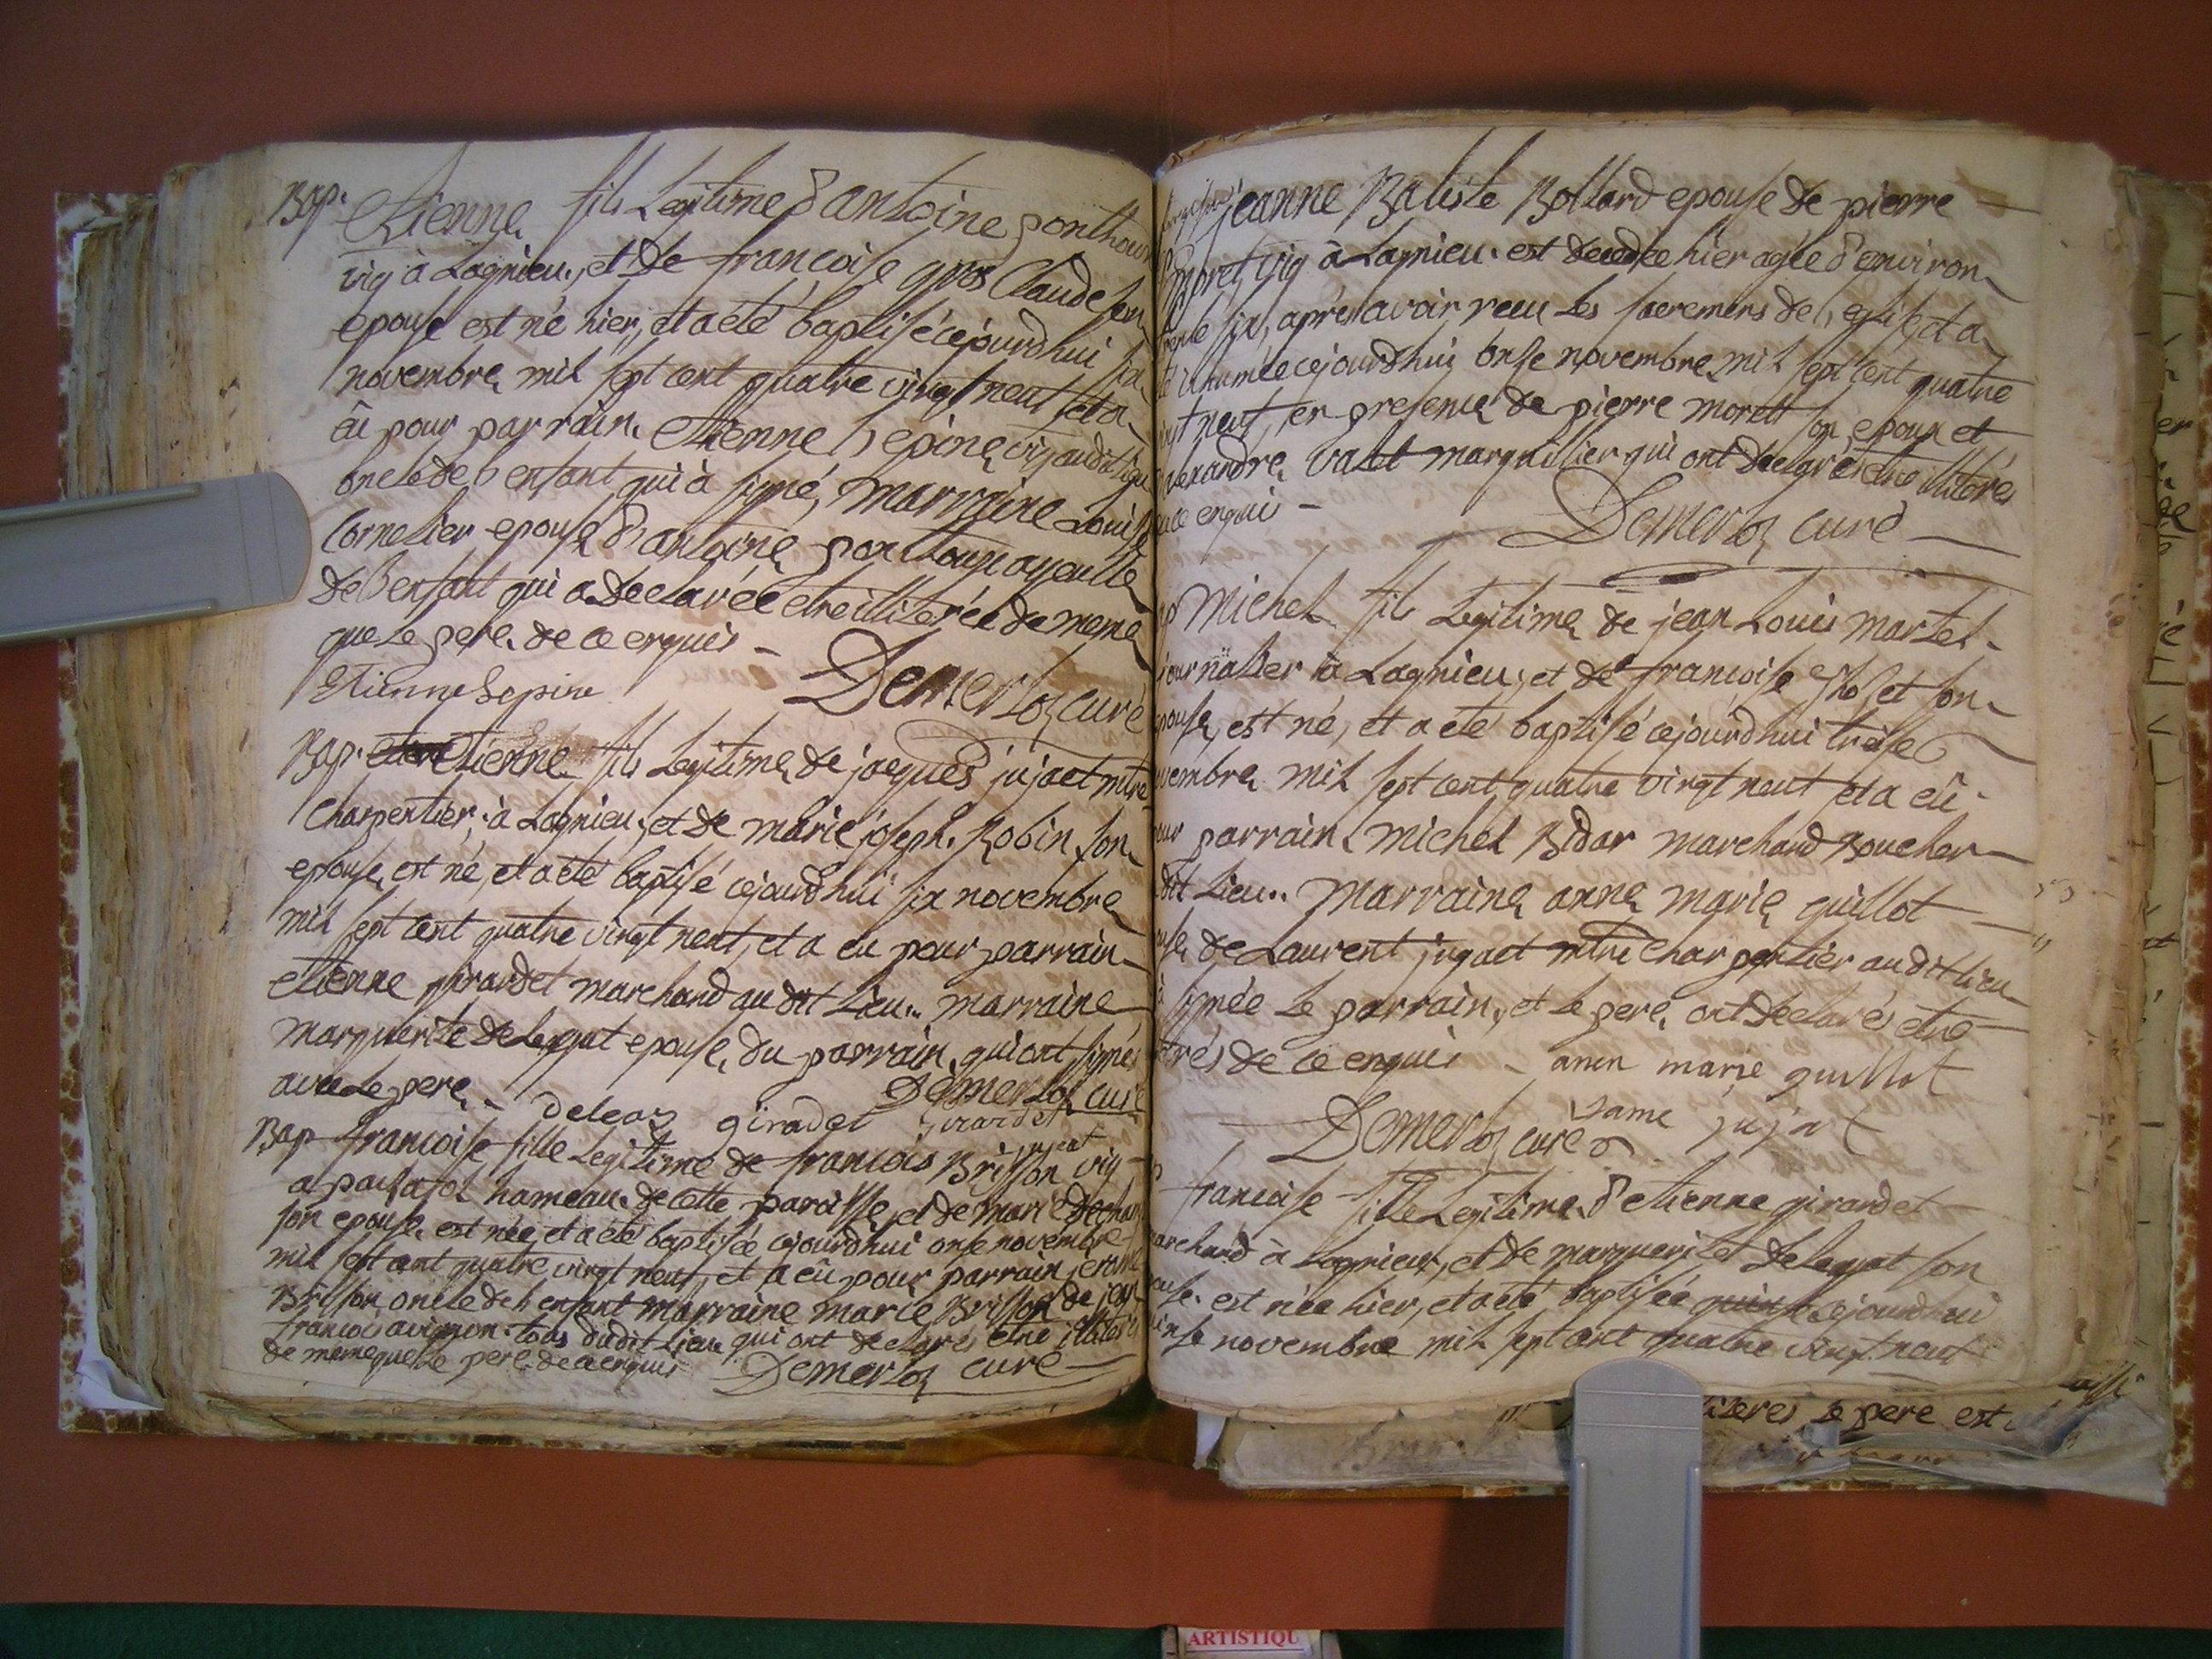 Bap. Etienne fils Legitime d'antoine ponthou
vig à Lagnieu, et de françoise gros Claude son
epouse est né hier, et a été baptisé cejourdhui six
novembre mil sept cent quatre vingt neuf et a
êu pour parrain Etienne Lepine vig audit lieu
oncle de l'enfant qui à signé, marraine Louise
Cornelier epouse d'antoine ponthoux ayeulle
de l'enfant qui a declarée etre illiterée de meme
que le pere de ce enquis -
Etienne Lepine Demerloz curé
Bap. Etienne fils Legitime de jacques jujact mtre
Charpentier à Lagnieu, et de marie joseph Robin son
epouse, est né, et a été baptisé cejourdhui six novembre
mil sept cent quatre vingt neuf, et a eu pour parrain
etienne girardet marchand au dit Lieu. marraine
marguerite delegat epouse du parrain, qui ont signés
avec le pere - Demerloz curé
deleaz giradet girardet
jujeat
Bap francoise fille Legitime de francois Brisson vig
a hameau de cette paroisse, et de marie
son epouse est née, et a été baptisée cejourdhui onse novembre
mil sept cent quatre vingt neuf, et a eû pour parrain jerome
Brisson oncle de l'enfant marraine marie Brisson de jean
francois avignon tous dudit Lieu qui ont declarés etre illiterés
de meme que le pere de ce enquis Demerloz curé
jeanne Batiste Bollard epouse de pierre
moret, vig à Lagnieu. est decedée hier agée d'environ
trente six, aprés avoir recu Les sacremens de l'eglise et a
été inhumée cejourdhui onse novembre mil sept cent quatre
vingt neuf, en presence de pierre morett son epoux et
alexandre valet marguillier qui ont declarés etre illiterés
de ce enquis -
Demerloz curé
Michel fils Legitime de jean Louis martel
journalier à Lagnieu, et de francoise son
epouse, est né, et a été baptisé cejourdhui treise
novembre mil sept cent quatre vingt neuf et a eû
pour parrain Michel Bidar marchand Boucher
dit Lieu. Marraine anne marie guillot
epouse de Laurent jugact mtre charpentier au dit lieu
à signée Le parrain, et Le pere ont declarés etre
trés de ce enquis - anen marie guillot
Demerloz curé fame jujat
francoise fille Legitime d'etienne girardet
marchand à Lagnieu, et de marguerite delegat son
epouse. est née hier, et a été baptisée cejourdhui
quinse novembre mil sept cent quatre vingt neuf
literés Le pere est
ARTISTIQU